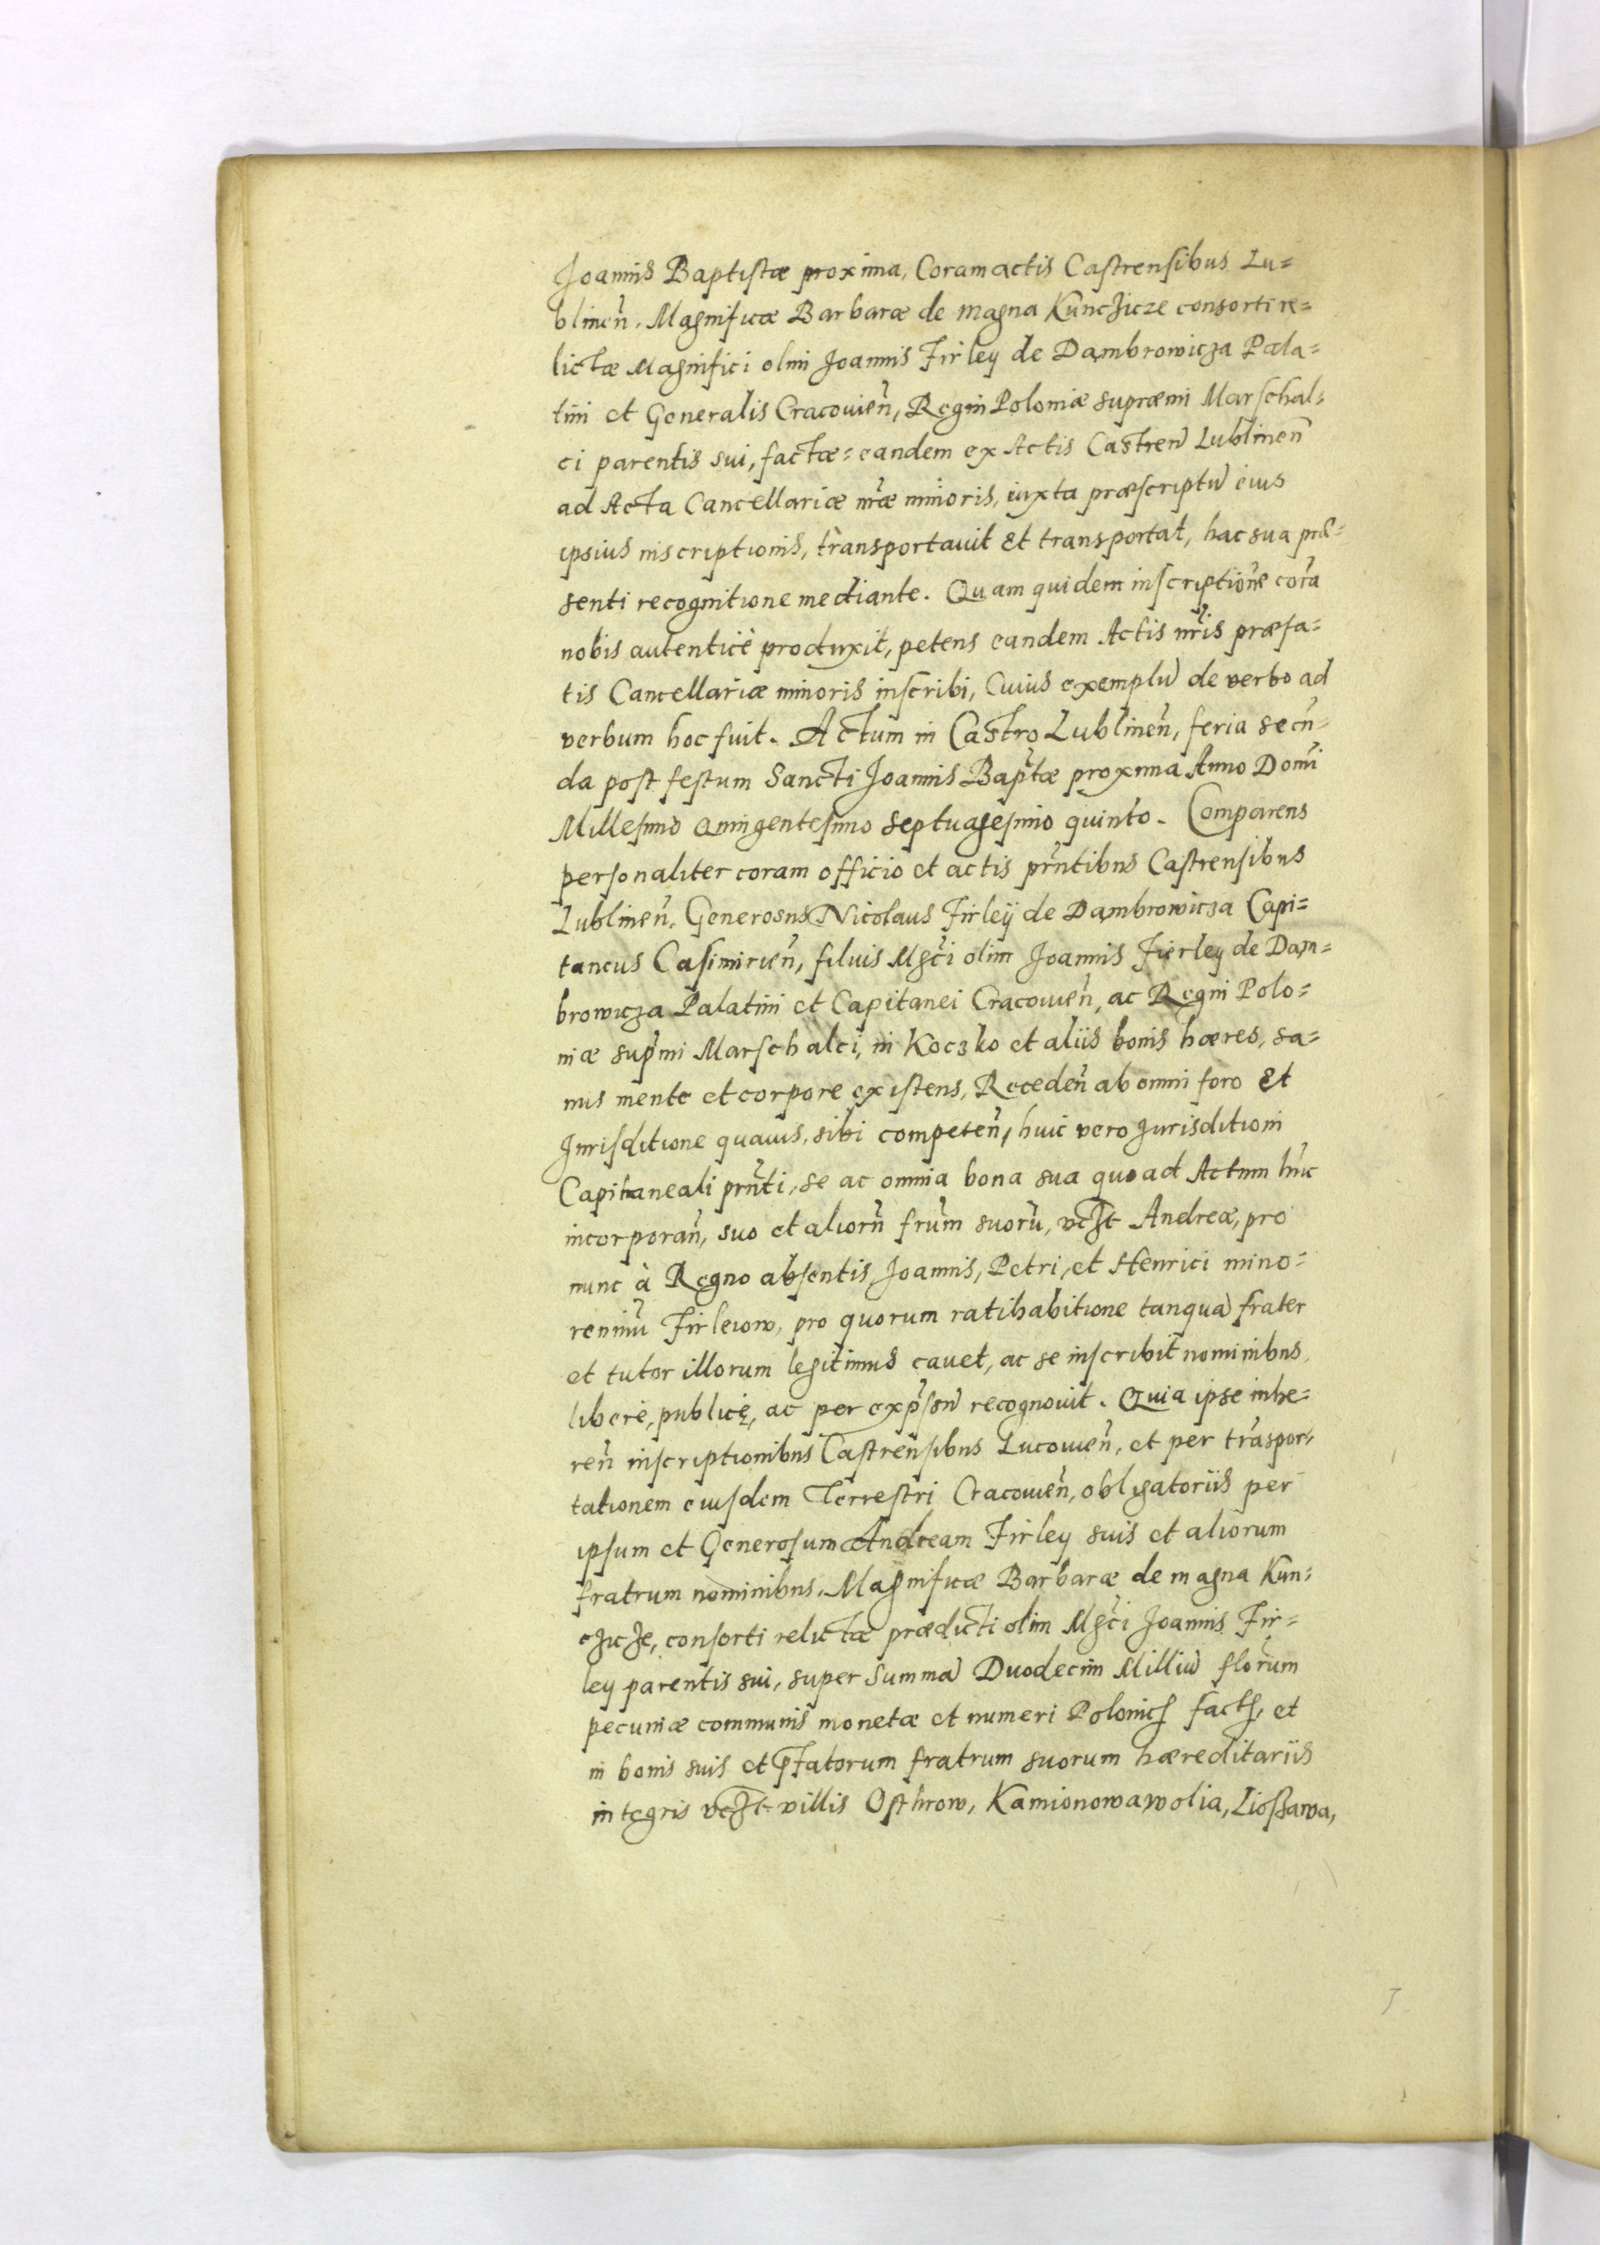 Joannis Baptistæ proxima, Coram actis Castrensibus Lu=
blineñ. Magnificæ Barbaræ de magna Kunczicze consorti re=
lictæ Magnifici olim Joannis Firley de Dambrowicza Pala=
tini et Generalis Cracovieñ, Regni Poloniæ supræmi Marschal=
ci parentis sui, factæ= eandem ex Actis Castreñ Lublineñ
ad Acta Cancellariæ nr̃æ minoris, iuxta præscriptũ eius
ipsius inscriptionis, transportavit et transportat, hac sua præ=
senti recognitione mediante. Quam quidem inscriptionẽ corã
nobis autenticè produxit, petens eandem Actis nr̃is præfa=
tis Cancellariæ minoris inscribi, Cuius exemplũ de verbo ad
verbum hoc fuit. Actum in Castro Lublineñ, feria secũ=
da post festum Sancti Joannis Bapt̃æ proxima Anno Domĩ
Millesimo Quingentesimo Septuagesimo quinto. Comparens
personaliter coram officio et actis prñtibus Castrensibus
Lublineñ. Generosus Nicolaus Firleÿ de Dambrowicza Capi=
taneus Casimirieñ, filius Mgc̃i olim Joannis Fierley de Dam=
browicza Palatini et Capitanei Cracovieñ, ac Regni Polo=
niæ sup̃mi Marschalci, in Koczko et aliis bonis hæres, sa=
nus mente et corpore existens, Recedeñ ab omni foro et
Jurisditione quavis, sibi competeñ, huic vero Jurisditioni
Capitaneali prñti, se ac omnia bona sua quoad Actum hũc
incorporañ, suo et aliorũ frũm suorũ, vczt Andreæ, pro
nunc à Regno absentis, Joannis, Petri, et Henrici mino=
renniũ Firleiow, pro quorum ratihabitione tanquã frater
et tutor illorum legitimus cavet, ac se inscribit nominibus,
liberè, publicè, ac per exp̃sũ recognovit. Quia ipse inhe=
reñ inscriptionibus Castrensibus Lucovieñ, et per trãspor=
tationem eiusdem Terrestri Cracovieñ, obligatoriis per
ipsum et Generosum Andream Firley suis et aliorum
fratrum nominibus, Magnificæ Barbaræ de magna Kun=
czicze, consorti relictæ prædicti olim Mgc̃i Joannis Fir=
ley parentis sui, super Summã Duodecim Milliũ flõrum
pecuniæ communis monetæ et numeri Polonicꝭ factꝭ, et
in bonis suis et p̃fatorum fratrum suorum hæreditariis
integris vczt villis Osthrow, Kamionowawolia, Lioszawa,